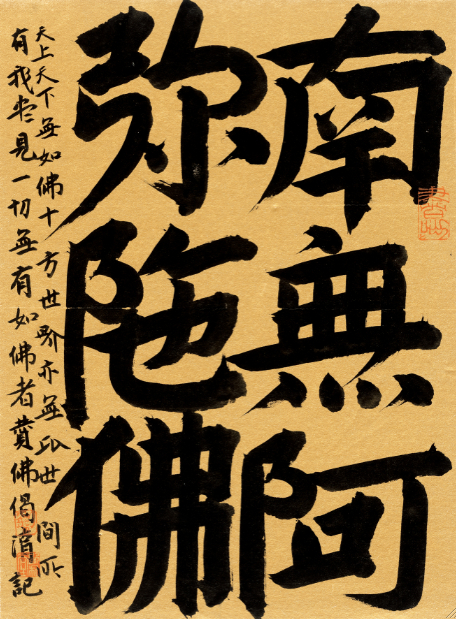 南無阿
弥陁佛
天上天下無如佛十方世界亦無比世間所
有我盡見一切無有如佛者贊佛偈記